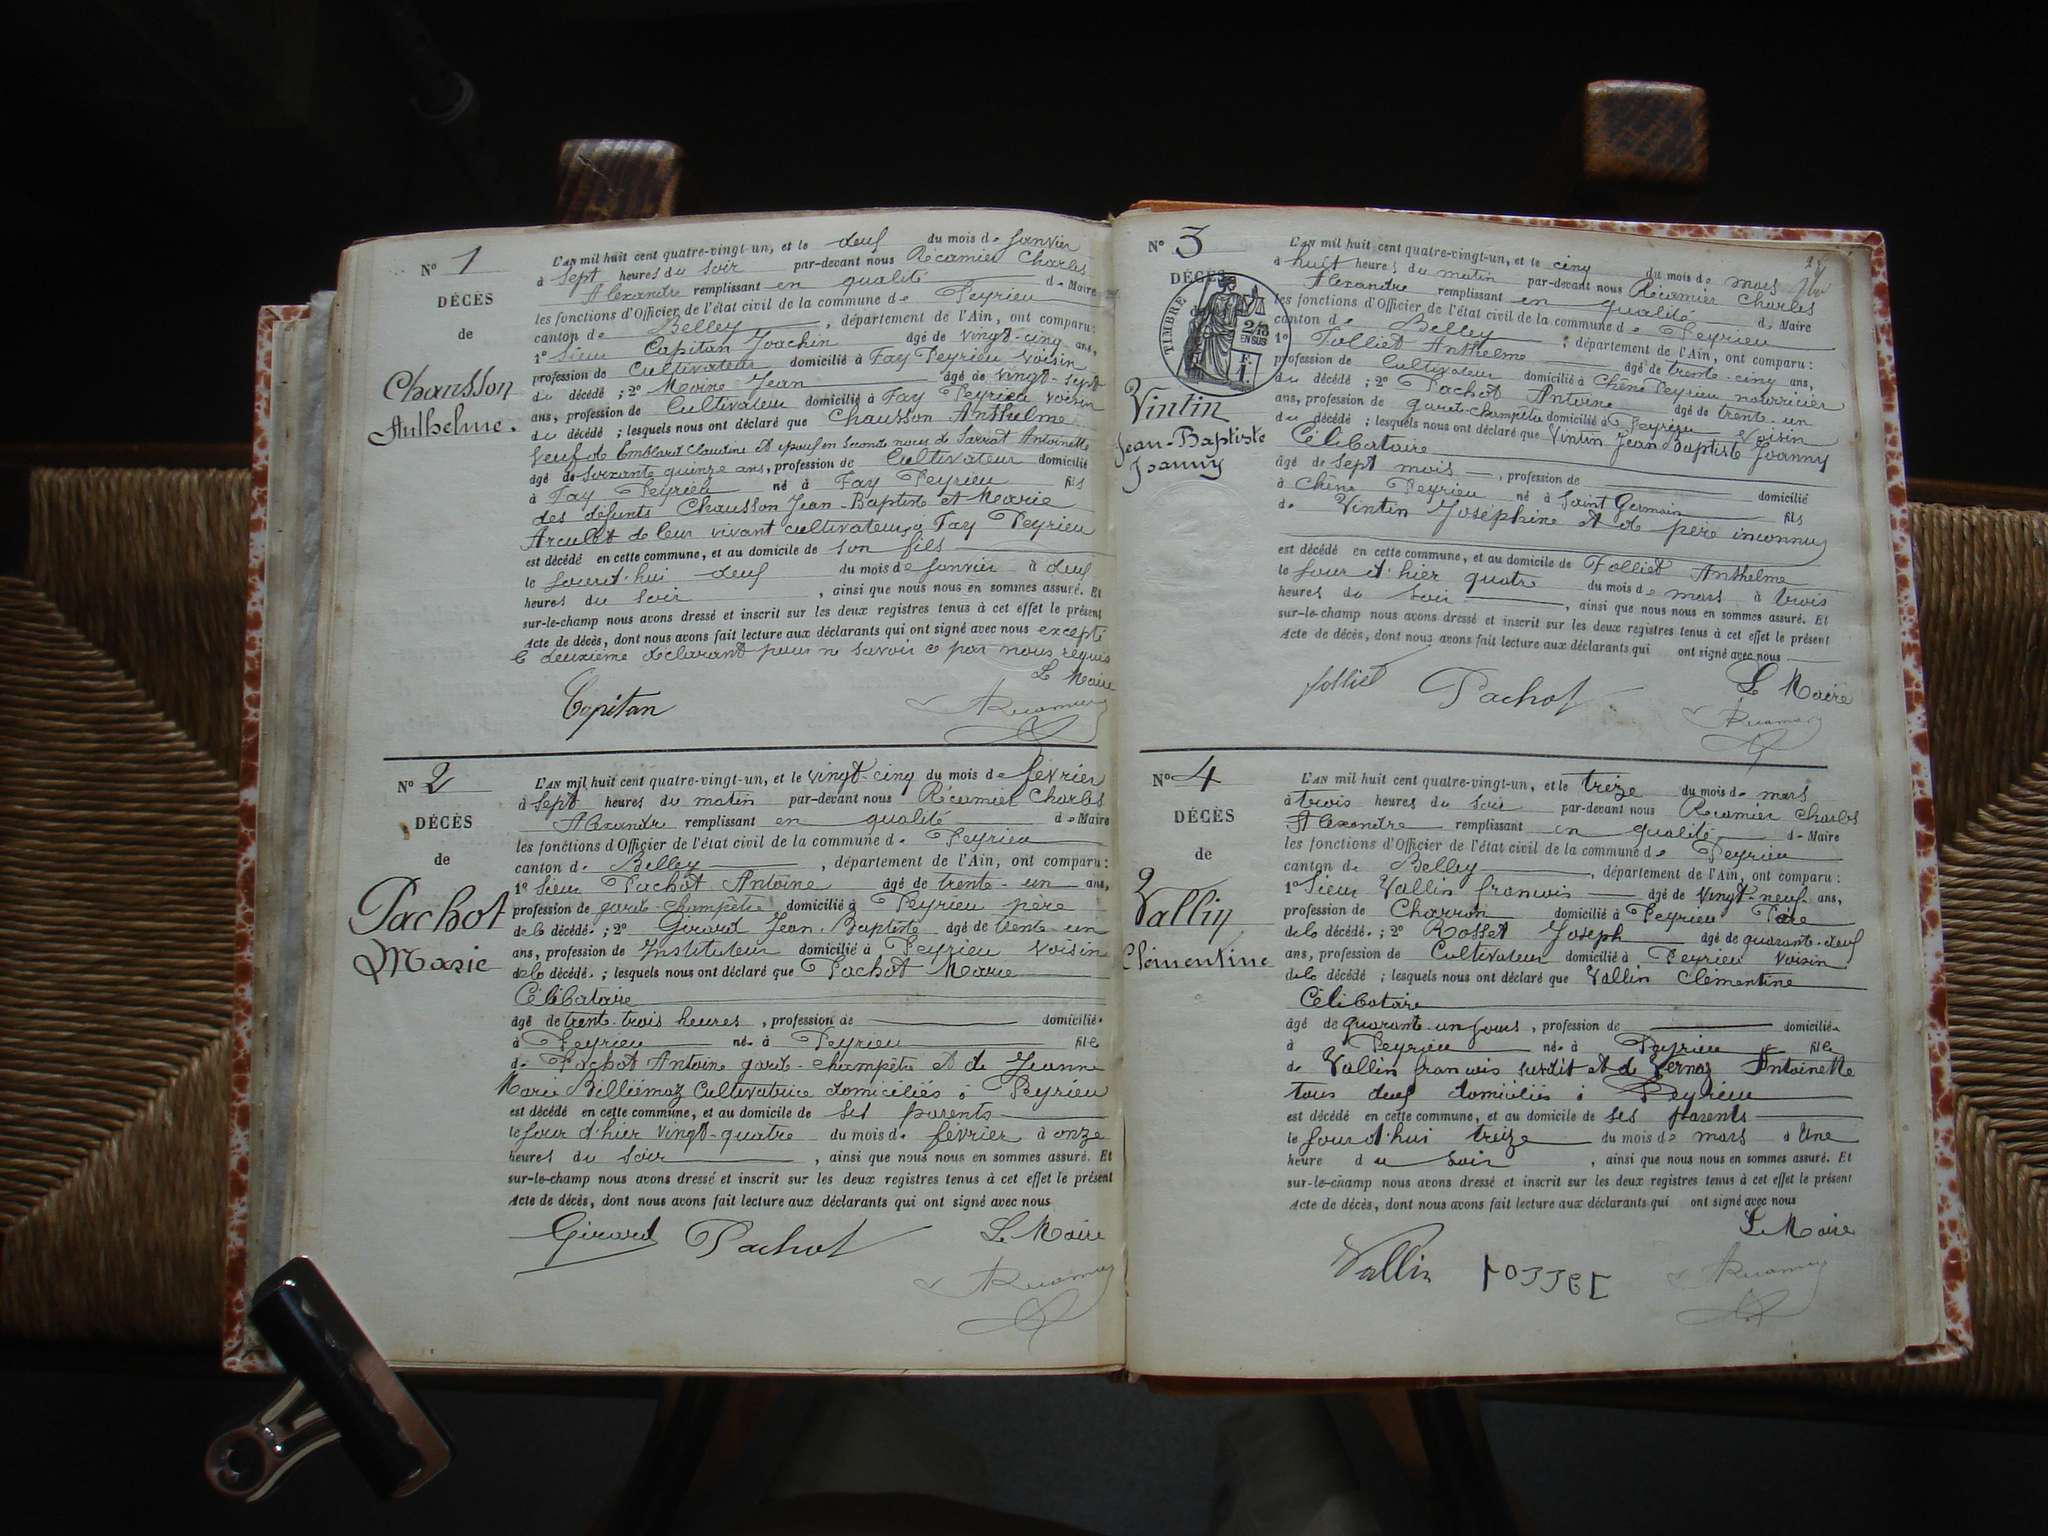 N° 1
DÉCÈS
de
Chausson
Anthelme.
L'AN mil huit cent quatre-vingt-un, et le deux du mois de Janvier
à Sept heures du soir par-devant nous Récamier Charles
Alexandre remplissant en qualité de Maire
les fonctions d'Officier de l'état civil de la commune de Peyrieu
canton de Belley, département de l'Ain, ont comparu:
1° Sieur Capitan Joachin âgé de vingt-cinq ans,
profession de Cultivateur domicilié à Fay Peyrieu voisin
du décédé; 2° Moine Jean âgé de vingt-sept
ans, profession de Cultivateur domicilié à Fay Peyrieu voisin
du décédé; lesquels nous ont déclaré que Chausson Anthelme
Veuf de Claudine et époux en seconde noces de Antoinette
âgé de soixante quinze ans, profession de Cultivateur domicilié
à Fay Peyrieu né à Fay Peyrieu fils
des défunts Chausson Jean-Baptiste et Marie
de leur vivant cultivateurs à Fay Peyrieu
est décédé en cette commune, et au domicile de son fils
le jourd'hui deux du mois de Janvier à deux
heures du soir, ainsi que nous nous en sommes assuré. Et
sur-le-champ nous avons dressé et inscrit sur les deux registres tenus à cet effet le présent
Acte de décès, dont nous avons fait lecture aux déclarants qui ont signé avec nous excepté
le deuxième déclarant pour ne savoir ce par nous requis
Le Maire
Capitan
N° 2
DÉCÈS
de
Pachot
Marie
L'AN mil huit cent quatre-vingt-un, et le vingt-cinq du mois de février
à Sept heures du matin par-devant nous Récamier Charles
Alexandre remplissant en qualité de Maire
les fonctions d'Officier de l'état civil de la commune de Peyrieu
canton de Belley, département de l'Ain, ont comparu:
1° Sieur Pachot Antoine âgé de trente-un ans,
profession de garde-champêtre domicilié à Peyrieu père
de la décédé.; 2° Girard Jean-Baptiste âgé de trente-un
ans, profession de Instituteur domicilié à Peyrieu voisin
de la décédé.; lesquels nous ont déclaré que Pachot Marie
Célibataire
âgé de trente-trois heures, profession de domicilié.
à Peyrieu né. à Peyrieu fille
de Pachot Antoine garde-champêtre et de Jeanne
Marie Billiémaz Cultivatrice domiciliés à Peyrieu
est décédé en cette commune, et au domicile de ses parents
le jour d'hier vingt-quatre du mois de février à onze
heures du soir, ainsi que nous nous en sommes assuré. Et
sur-le-champ nous avons dressé et inscrit sur les deux registres tenus à cet effet le présent
Acte de décès, dont nous avons fait lecture aux déclarants qui ont signé avec nous
Le Maire
Girard Pachot
N° 3
DÉCÈS
TIMBRE
2/10
EN SUS
F.
1.
Vintin
Jean-Baptiste
Joanny
L'AN mil huit cent quatre-vingt-un, et le cinq du mois de mars
à huit heures du matin par-devant nous Récamier Charles
Alexandre remplissant en qualité de Maire
les fonctions d'Officier de l'état civil de la commune de Peyrieu
canton de Belley, département de l'Ain, ont comparu:
1° Folliet Anthelme âgé de trente-cinq ans,
profession de Cultivateur domicilié à Chêne Peyrieu nourricier
du décédé; 2° Pachot Antoine âgé de trente-un
ans, profession de garde-champêtre domicilié à Peyrieu voisin
du décédé; lesquels nous ont déclaré que Vintin Jean Baptiste Joanny
Célibataire
âgé de sept mois, profession de domicilié
à Chêne Peyrieu né à Saint Germain fils
de Vintin Joséphine et de père inconnu
est décédé en cette commune, et au domicile de Folliet Anthelme
le jour d'hier quatre du mois de mars à trois
heures du soir, ainsi que nous nous en sommes assuré. Et
sur-le-champ nous avons dressé et inscrit sur les deux registres tenus à cet effet le présent
Acte de décès, dont nous avons fait lecture aux déclarants qui ont signé avec nous
Le Maire
folliet Pachot
N° 4
DÉCÈS
de
Vallin
Clémentine
L'AN mil huit cent quatre-vingt-un, et le treize du mois de mars
à trois heures du soir par-devant nous Récamier Charles
Alexandre remplissant en qualité de Maire
les fonctions d'Officier de l'état civil de la commune de Peyrieu
canton de Belley, département de l'Ain, ont comparu:
1° Sieur Vallin françois âgé de vingt-neuf ans,
profession de Charron domicilié à Peyrieu Père
de la décédé.; 2° Rosset Joseph âgé de quarante-deux
ans, profession de Cultivateur domicilié à Peyrieu voisin
de la décédé; lesquels nous ont déclaré que Vallin Clémentine
Célibataire
âgé de quarante-un jours, profession de domicilié.
à Peyrieu né. à Peyrieu fille
de Vallin françois susdit et de Vernaz Antoinette
tous deux domiciliés à Peyrieu
est décédé en cette commune, et au domicile de ses parents
le jourd'hui treize du mois de mars à Une
heure du soir, ainsi que nous nous en sommes assuré. Et
sur-le-champ nous avons dressé et inscrit sur les deux registres tenus à cet effet le présent
Acte de décès, dont nous avons fait lecture aux déclarants qui ont signé avec nous
Le Maire
Vallin rosset